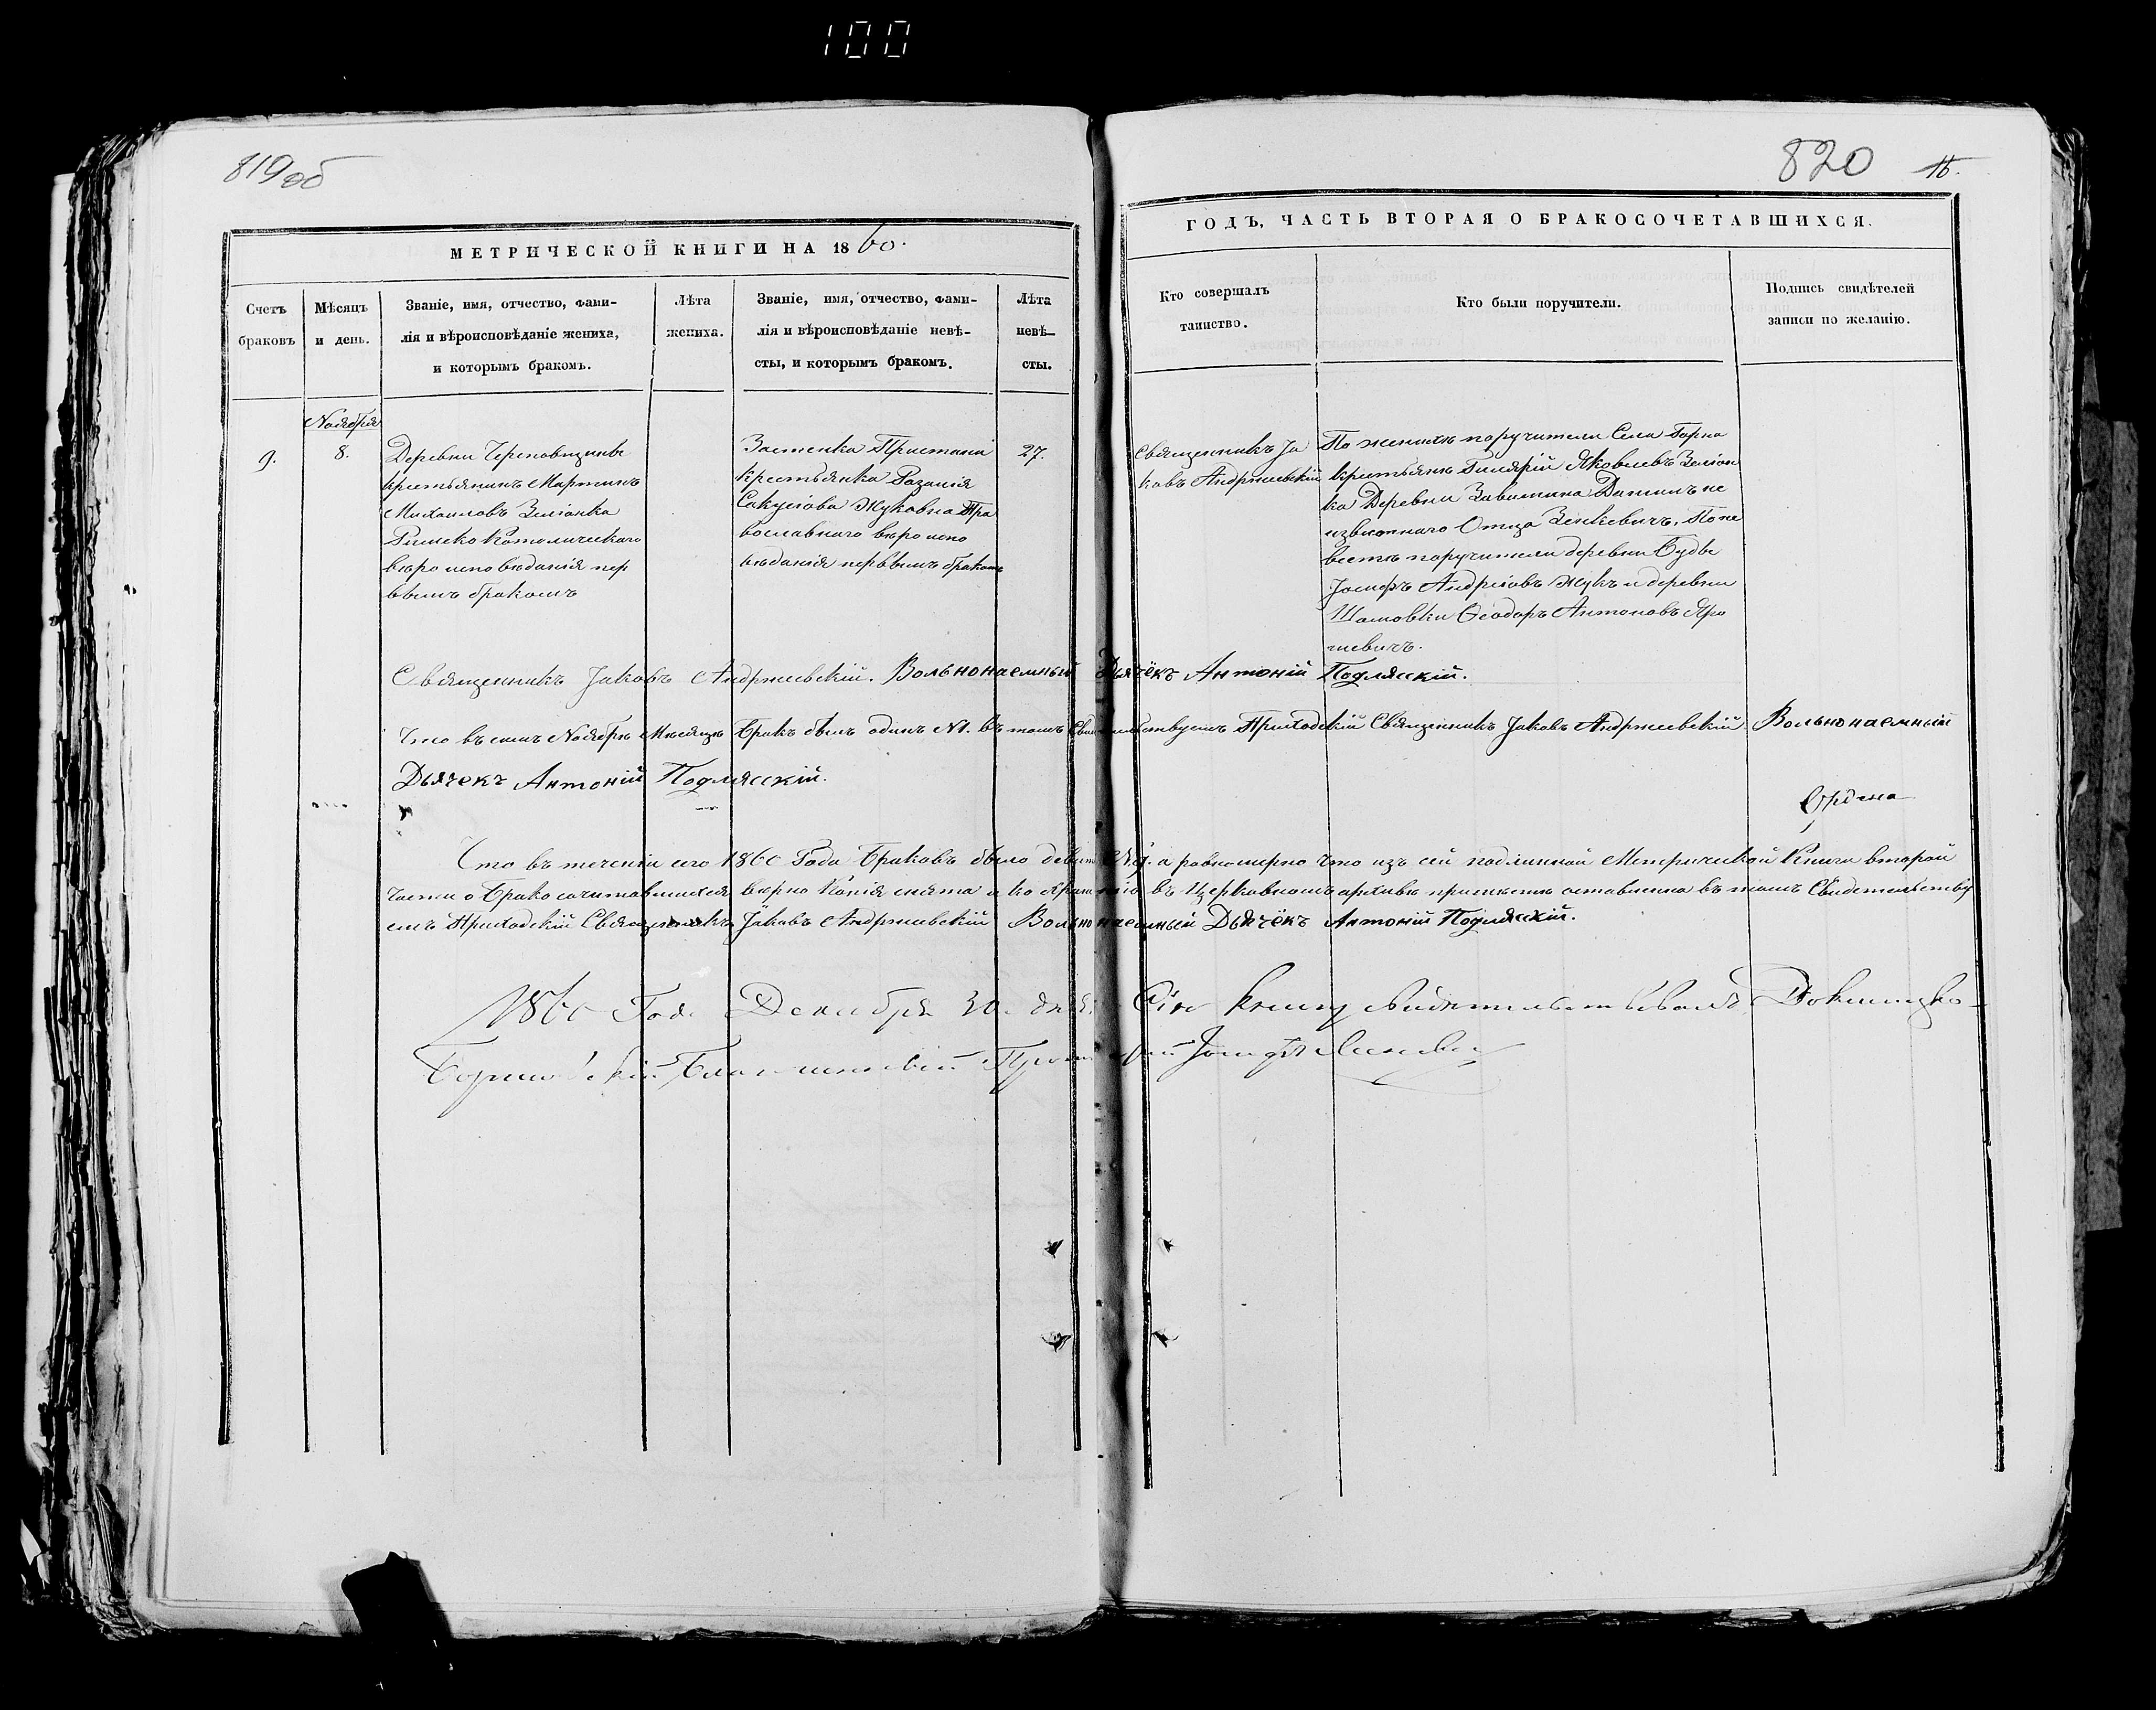 100
819об
820 16.
МЕТРИЧЕСКОЙ КНИГИ НА 1860.
ГОДЪ, ЧАСТЬ ВТОРАЯ О БРАКОСОЧЕТАВШИХСЯ.
Счетъ
браковъ
Мѣсяцъ
и день.
Званіе, имя, отчество, фами-
лія и вѣроисповѣданіе жениха,
и которымъ бракомъ.
Лѣта
жениха.
Званіе, имя, отчество, фами-
лія и вѣроисповѣданіе невѣ-
сты, и которымъ бракомъ.
Лѣта
невѣ-
сты.
Кто совершалъ
таинство.
Кто были поручители.
Подпись свидѣтелей
записи по желанію.
9.
Ноября
8.
Деревни
крестьянинъ Мартинъ
Михаиловъ Зеліонка
Римско Католическаго
вѣро исповѣданія пер
вымъ бракомъ
Застенка Пристани
крестьянка Розалія
Жуковна Пра
вославнаго вѣро испо
вѣданія первымъ бракомъ
27.
Священникъ Іа
ковъ Андржиевскій
По женихѣ поручители Села
крестьяне Яковлевъ Зеліон
ка Деревни Замни не
извѣстнаго Отца Зенкевичъ. По не
вестѣ поручители деревни
Іосифъ Андреіовъ Жукъ и деревни
Шамовки Ѳеодоръ Антоновъ Яро
шевичъ.
Священникъ Іаковъ Андржиевскій. Вольнонаемный Дьячёкъ Антоній Подлясскій.
Что въ семъ Ноябрѣ Мѣсяцѣ Бракъ былъ одинъ №1. въ томъ Свидѣтельствуетъ Приходскій Священникъ Іаковъ Андржиевскій. Вольнонаемный
Дьячекъ Антоній Подлясскій.
Что въ теченіи сего 1860 Года Браковъ было девять №9. а равномерно что изъ сей подлинной Метрической Книги второй
части о Брако сочитавшихся вѣрно Копія снята и ко храненію въ Церковномъ архивѣ оставлена въ томъ Свидетельству
етъ Приходскій Священникъ Іаковъ Андржиевскій Вольнонаемный Дьячёкъ Антоній Подлясскій.
1860 Года Декабря 30. дня Сію книгу свидѣтельствовалъ Докшицко-
Борисовскій Благочинный Іосифъ